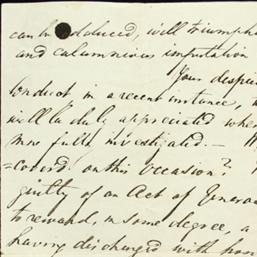 can be adduced, will triumph
and calumnious imputation
Your
Conduct in a recent instance,
will be duly appreciated whe
more fully investigated. —
=coverd. on this Occasion?
guilty of an Act of Generos
to reward, in some degree, a
having discharged with hon